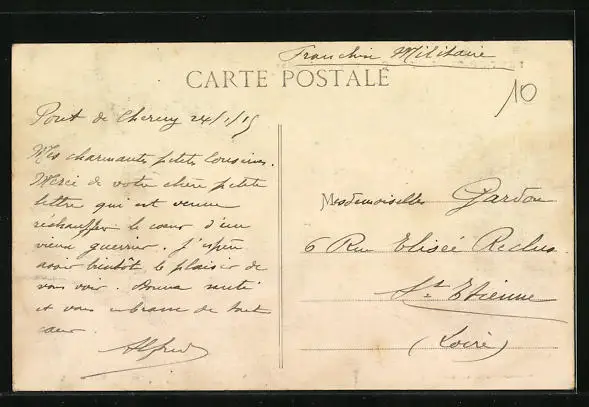 Franchise Militaire
CARTE POSTALE
10
Pont de Cheruy 24/1/15
Mes charmantes petites Cousines.
Merci de votre chère petite
lettre qui est venue
réchauffer le cœur d'un
vieux guerrier. J'espère
avoir bientôt le plaisir de
vous voir. Bonne santé
et vous embrasse de tout
cœur.
Alfred
Mesdemoiselles Gardon
6 Rue Elisée Reclus
St Etienne
(Loire)